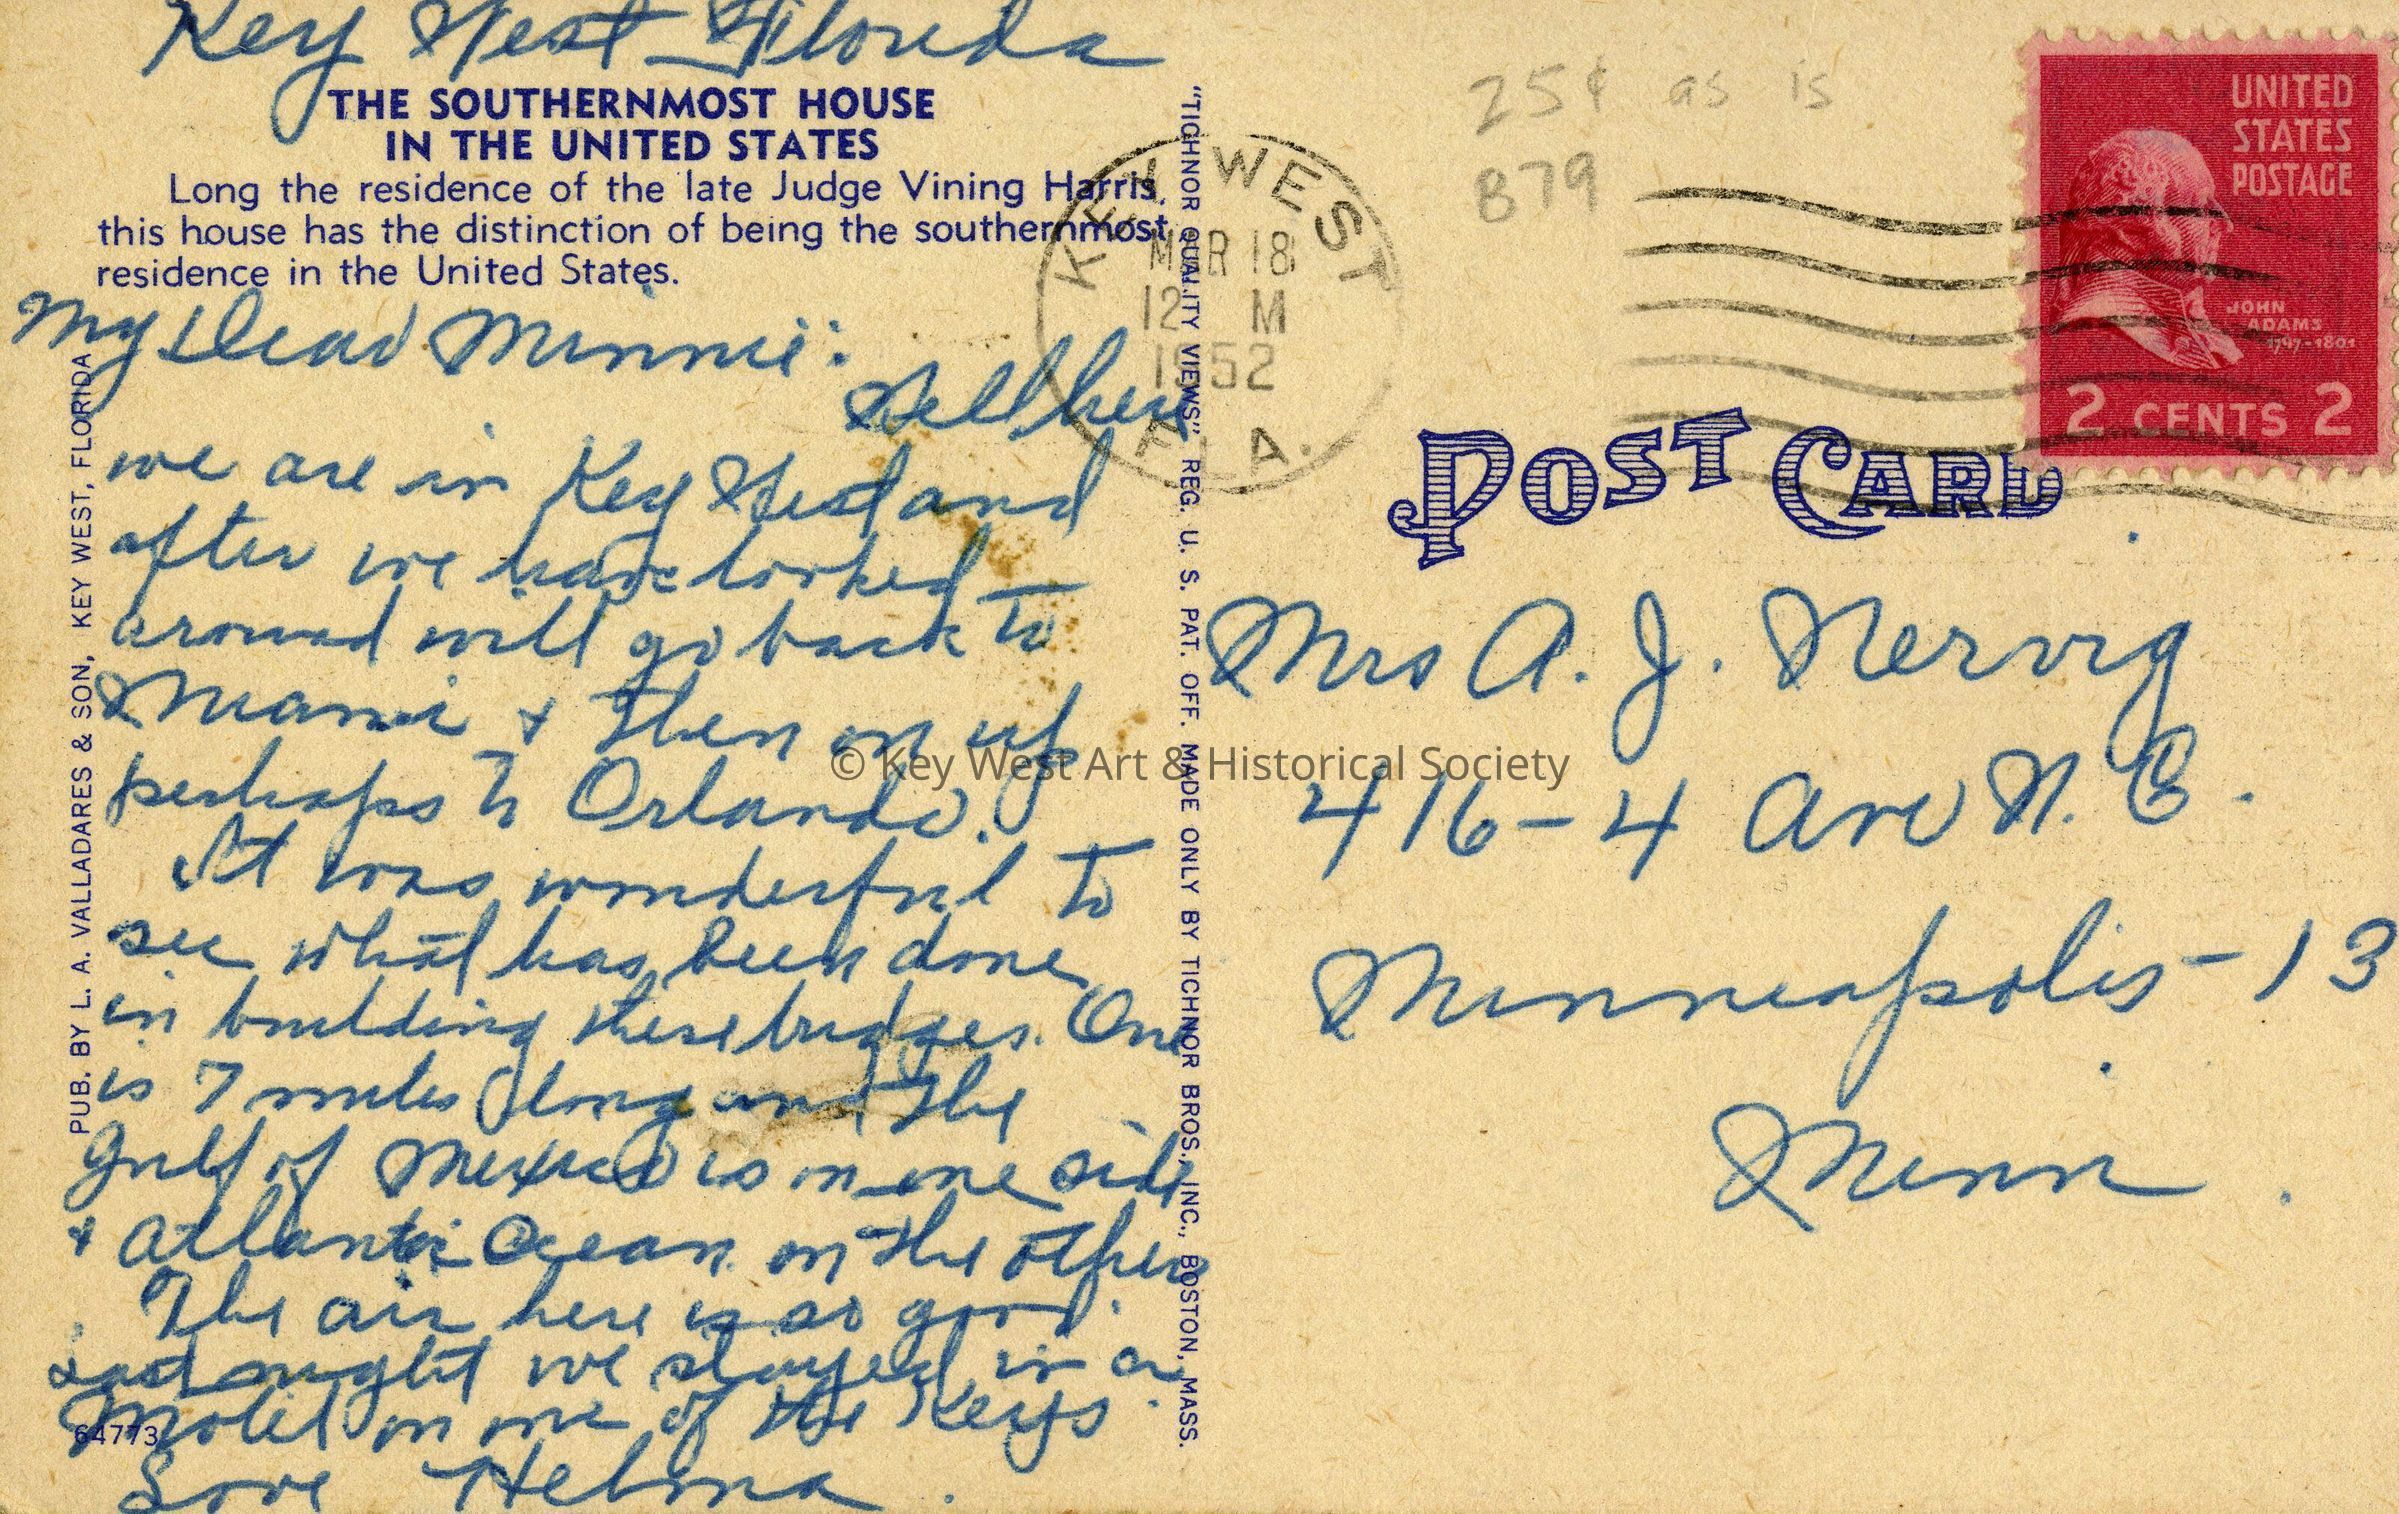 Key West Florida
THE SOUTHERNMOST HOUSE
IN THE UNITED STATES
Long the residence of the late Judge Vining Harris,
this house has the distinction of being the southernmost
residence in the United States.
My Dear Minnie:
Well here
we are in Key West and
after we have looked
around will go back to
Miami & then on up
perhaps to Orlando.
It was wonderful to
see what has been done
in building these bridges. One
is 7 miles long and the
Gulf of Mexico is on one side
& Atlantic Ocean on the other
The air here is so good.
Last night we stayed in a
Motel on one of the Keys.
Love Helma.
64773
PUB. BY L. A. VALLADARES & SON, KEY WEST, FLORIDA
"TICHNOR QUALITY VIEWS" REG. U. S. PAT. OFF. MADE ONLY BY TICHNOR BROS., INC., BOSTON, MASS.
KEY WEST
MAR 18
12 M
1952
FLA.
25¢ as is
879
UNITED
STATES
POSTAGE
JOHN
ADAMS
1797-1801
2 CENTS 2
POST CARD
Mrs A. J. Nervig
416-4 Ave N. E.
Minneapolis-13
Minn.
© Key West Art & Historical Society